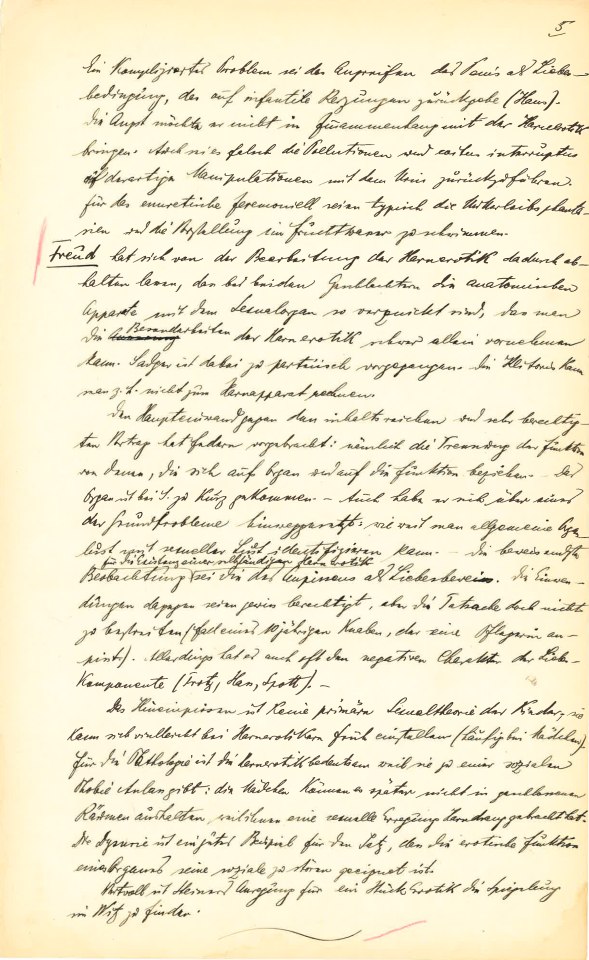 5
Ein kompliziertes Problem sei das Angreifen des Penis als Liebes-
bedingung, das auf infantile Reizungen zurückgehe (Hans).
Die Angst möchte er nicht in Zusammenhang mit der Harnerotik
bringen. Auch sei es falsch die Pollutionen und coitus interruptus
auf derartige Manipulationen mit dem Urin zurückzuführen.
für das enuretische Zeremoniell seien typisch die Mutterleibsphanta-
sien und die Vorstellung im Fruchtwasser zu schwimmen.
Freud hat sich von der Bearbeitung der Harnerotik dadurch ab-
halten lassen, dass bei beiden Geschlechtern die anatomischen
Apparate mit dem Sexualorgan so verquickt sind, dass man
die Besonderheiten der Harnerotik schwer allein vornehmen
kann. Sadger ist dabei zu parteiisch vorgegangen. Die Klitoris kann
man z. B. nicht zum Harnapparat rechnen.
Den Haupteinwand gegen den inhaltsreichen und sehr berechtig-
ten Vortrag hat Federn vorgebracht: nämlich die Trennung der Funktion
von denen, die sich aufs Organ und auf die Funktion beziehen. – Das
Organ ist bei S. zu kurz gekommen. – Auch habe er sich über eines
der Grundprobleme hinweggesetzt: wie weit man allgemeine Organ-
lust mit sexueller Lust identifizieren kann. – Die beweisendste
für die Existenz einer selbständigen Harnerotik
Beobachtung sei die des Anpissens als Liebesbeweis. Die Einwen-
dungen dagegen seien gewiss berechtigt, aber die Tatsache doch nicht
zu bestreiten (Fall eines 10jährigen Knaben, der eine Pflegerin an-
pisst). Allerdings hat es auch oft den negativen Charakter der Liebes-
komponente (Trotz, Hass, Spott). –
Das Hineinpissen ist keine primäre Sexualtheorie der Kinder; sie
kann sich vielleicht bei Harnerotikern früh einstellen (häufig bei Mädchen).
Für die Pathologie ist die Harnerotik bedeutsam weil sie zu einer sozialen
Phobie Anlass gibt: die Mädchen können es später nicht in geschlossenen
Räumen aushalten, weil ihnen eine sexuelle Erregung Harndrang gebracht hat.
Die Dysurie ist ein gutes Beispiel für den Satz, dass die erotische Funktion
eines Organes seine soziale zu stören geeignet ist.
Wertvoll ist Steiners Anregung für ein Stück Erotik die Spiegelung
im Witz zu finden.